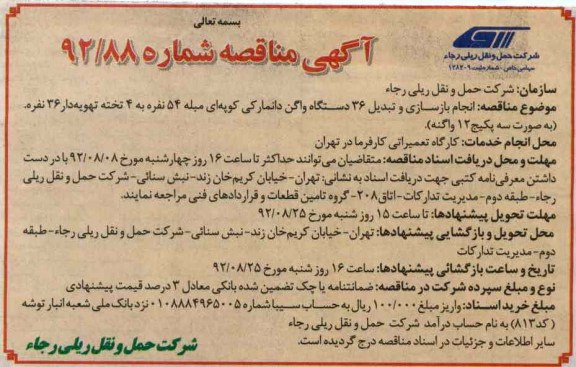 بسمه تعالی
آگهی مناقصه شماره ۹۲/۸۸
شرکت حمل و نقل ریلی رجاء
سازمان: شرکت حمل و نقل ریلی رجاء
موضوع مناقصه: انجام بازسازی و تبدیل ۳۶ دستگاه واگن دانمارکی کوپه‌ای مبله ۵۴ نفره به ۴ تخته تهویه‌دار ۳۶ نفره.
(به صورت سه پکیج ۱۲ واگنه).
محل انجام خدمات: کارگاه تعمیراتی کارفرما در تهران
مهلت و محل دریافت اسناد مناقصه: متقاضیان می‌توانند حداکثر تا ساعت ۱۶ روز چهارشنبه مورخ ۹۲/۰۸/۰۸ با در دست
داشتن معرفی‌نامه کتبی جهت دریافت اسناد به نشانی: تهران-خیابان کریم‌خان زند- نبش سنائی-شرکت حمل و نقل ریلی
رجاء- طبقه دوم-مدیریت تدارکات-اتاق۲۰۸-گروه تامین قطعات و قراردادهای فنی مراجعه نمایند.
مهلت تحویل پیشنهادها: تا ساعت ۱۵ روز شنبه مورخ ۹۲/۰۸/۲۵
محل تحویل و بازگشایی پیشنهادها: تهران-خیابان کریم‌خان زند-نبش سنائی-شرکت حمل و نقل ریلی رجاء-طبقه
دوم-مدیریت تدارکات
تاریخ و ساعت بازگشائی پیشنهادها: ساعت ۱۶ روز شنبه مورخ ۹۲/۰۸/۲۵
نوع و مبلغ سپرده شرکت در مناقصه: ضمانتنامه یا چک تضمین شده بانکی معادل ۳ درصد قیمت پیشنهادی
مبلغ خرید اسناد: واریز مبلغ ۱۰۰/۰۰۰ ریال به حساب سیبا شماره ۰۱۰۸۸۸۴۹۶۵۰۰۵ نزد بانک ملی شعبه انبار توشه
(کد۸۱۳) به نام حساب درآمد شرکت حمل و نقل ریلی رجاء
سایر اطلاعات و جزئیات در اسناد مناقصه درج گردیده است.
شرکت حمل و نقل ریلی رجاء